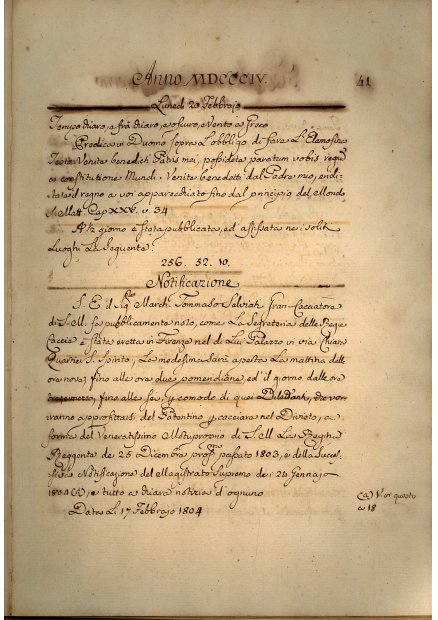 Anno MDCCCIV.
41
Lunedì 20 Febbrajo
Tempo chiaro, e frà chiaro, e oscuro, e Vento a Greco
Predica in Duomo sopra L'obbligo di fare L'Elemosina
Testo Venite benedicti Patris mei, possidete paratum vobis regnũ
a constitutione Mundi. Venite benedetti dal Padre mio, eredi-
tate il regno a voi apparecchiato fino dal principio del Mondo
S. Matt. Cap XXV. v. 34
A ½ giorno è stata pubblicata, ed affissata nei soliti
Luoghi La Seguente:
256. 52. 10.
Notificazione
S. E. il Sig.re March. Tommaso Salviati Gran-Cacciatore
di S. M. fa pubblicamente noto, come La Segreteria delle Regie
Caccie è stata eretta in Firenze nel di Lui Palazzo in via Chiara
Quartier S. Spirito, La medesima sarà aperta La mattina dalle
ore nove, fino alle ore due pomeridiane, ed il giorno dalle ore
fino alle sei, p comodo di quei Dilettanti, che vor-
ranno approfittarsi del Patentino p cacciare nel Divieto, a
forma del Veneratissimo Motuproprio di S. M. La Regina
Reggente de 25 Dicembre pros.mo passato 1803, e della Succes-
siva Notificazione del Magistrato Supremo de: 24 Gennajo
1804 (A), e tutto a chiara notizia d'ognuno
Data Li 17 Febbrajo 1804
(A) V. in questo
a 18